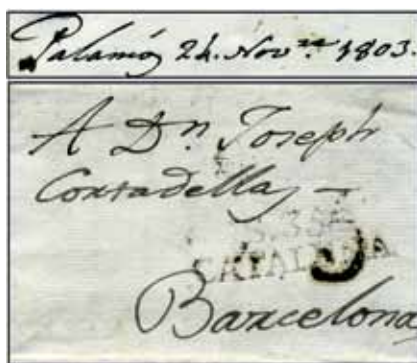 Palamós 24. Nov.re 1803.
A Dn. Joseph
Contadella
CATALUÑA
Barcelona